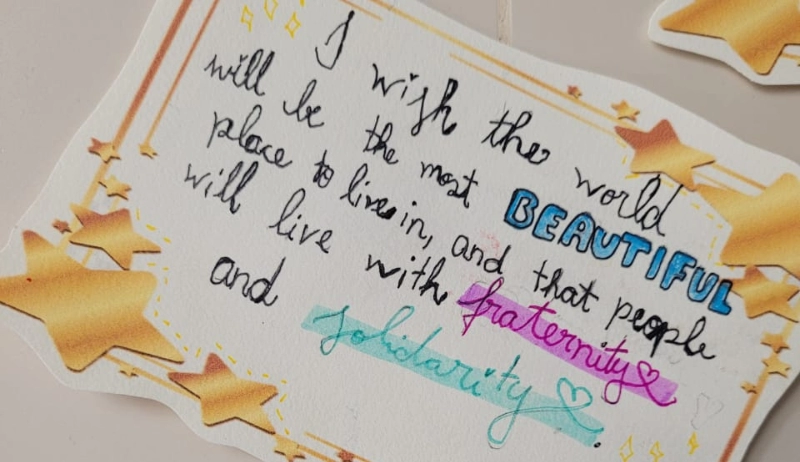 I wish the world
will be the most BEAUTIFUL
place to live in, and that people
will live with fraternity
and solidarity.